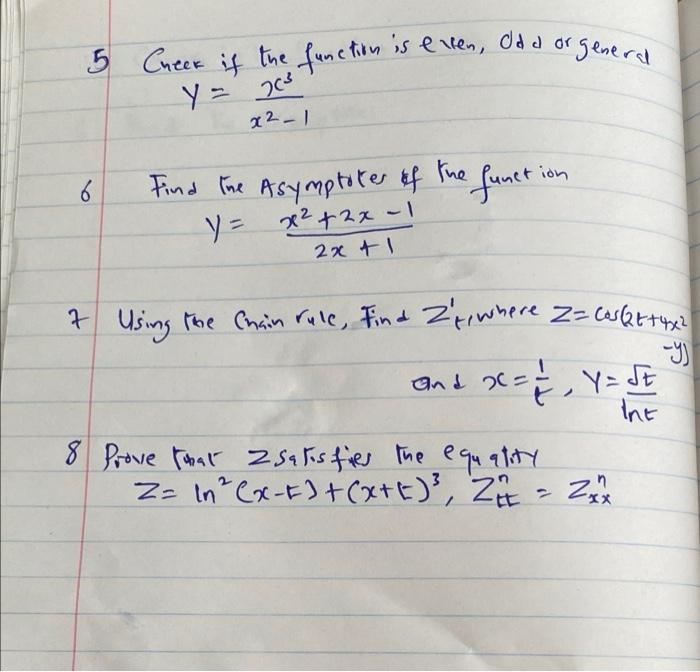 5 Check if the function is even, Odd or general
Y = x³/(x² - 1)
6 Find the Asymptotes of the function
Y = (x² + 2x - 1)/(2x + 1)
7 Using the Chain rule, Find Z't, where Z = cos(2t + 4x² - y)
and x = 1/t, Y = √t/lnt
8 Prove that Z satisfies the equality
Z = ln²(x - t) + (x + t)³, Z''tt = Z''xx